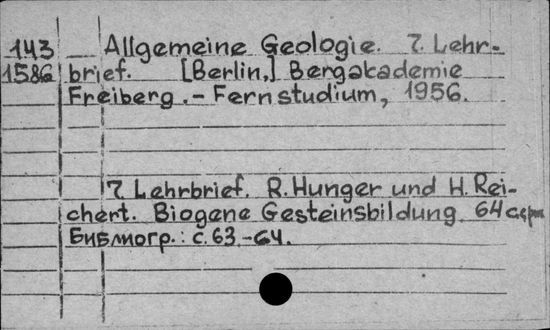 143 Allgemeine Geologie. 7. Lehr-
1586 brief. [Berlin,] Bergakademie
Freiberg. - Fernstudium, 1956.
7. Lehrbrief. R. Hunger und H. Rei-
chert. Biogene Gesteinsbildung. 64 с.
Библиогр.: с. 63-64.